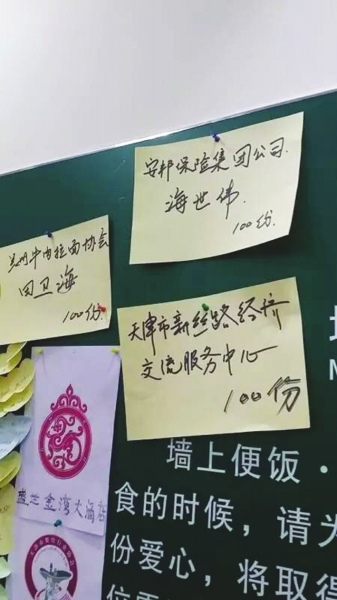 安邦保险集团公司
海世伟
100份.
兰州牛肉拉面协会
田卫海
100份.
天津市新丝路经济
交流服务中心
100份
盛世金湾大酒店
墙上便饭·
食的时候，请为
份爱心，将取得